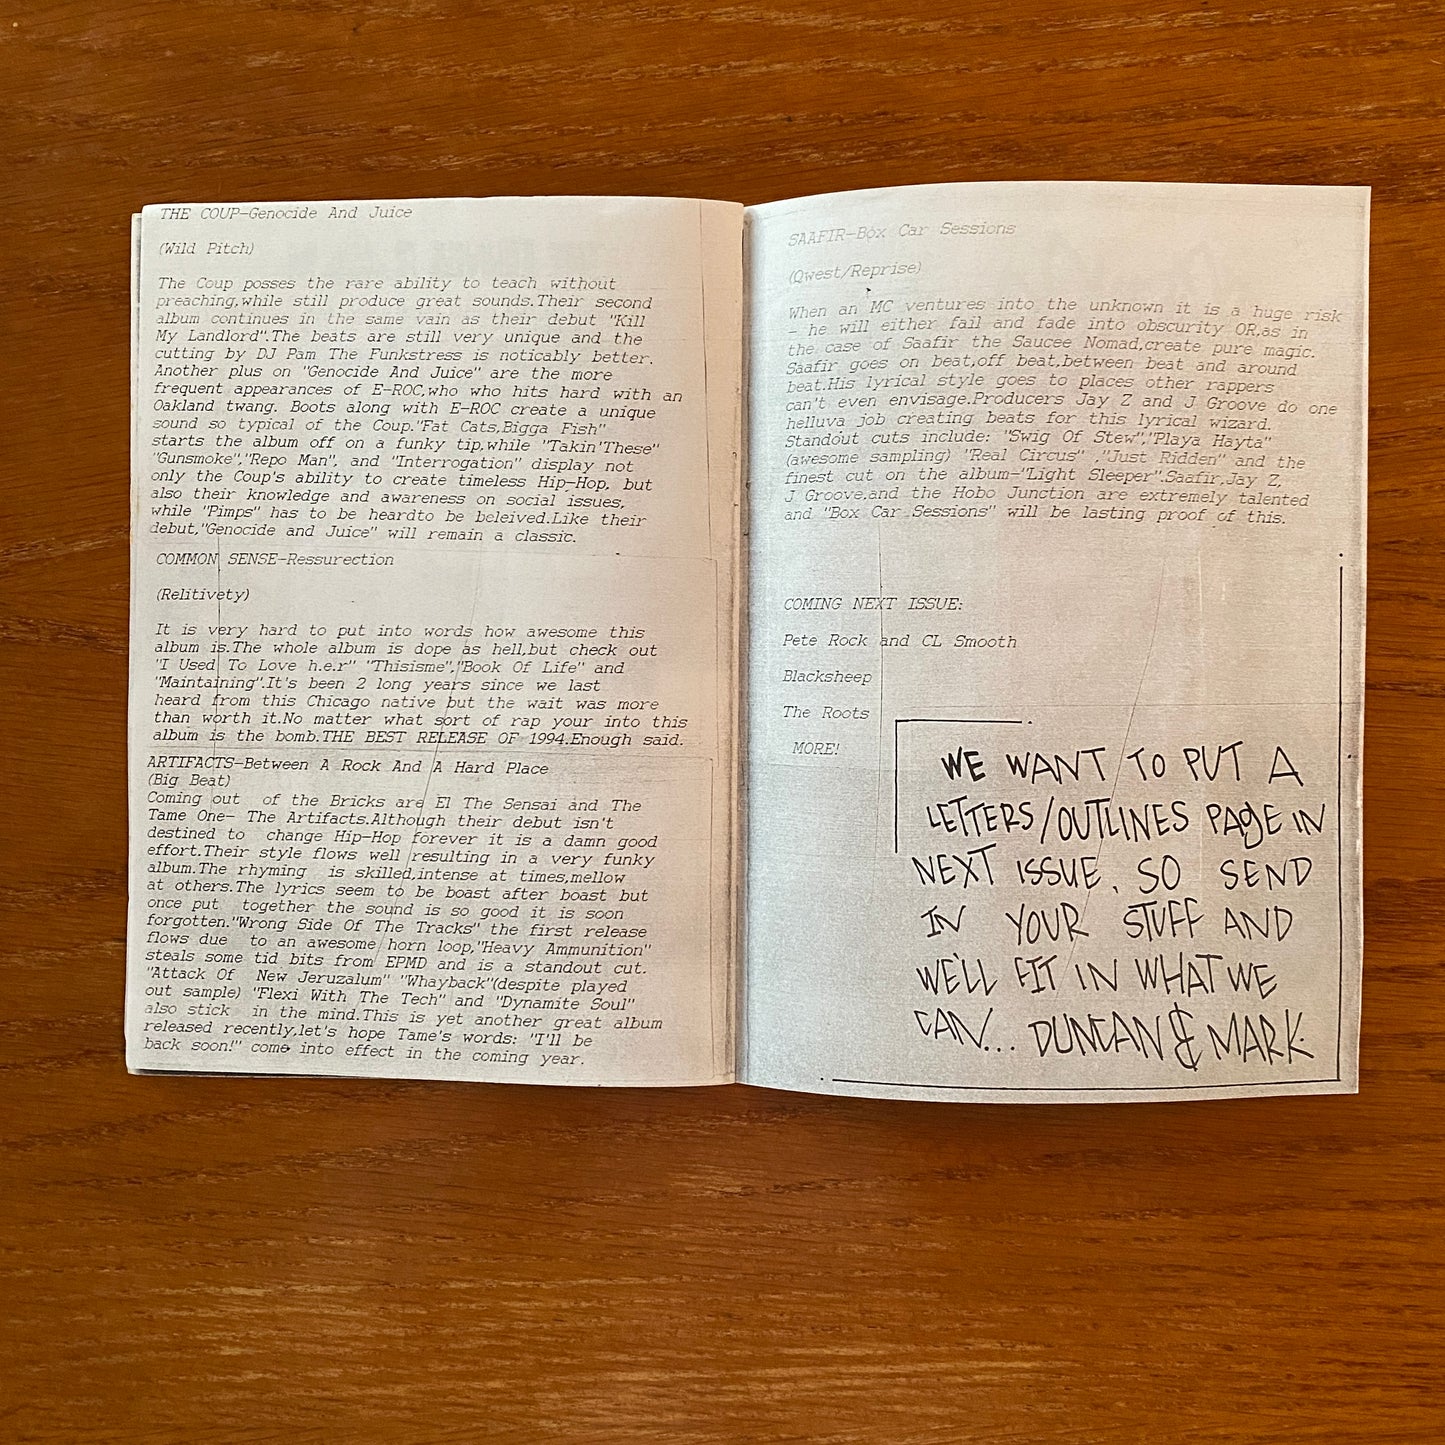 THE COUP-Genocide And Juice
(Wild Pitch)
The Coup posses the rare ability to teach without
preaching,while still produce great sounds.Their second
album continues in the same vain as their debut "Kill
My Landlord".The beats are still very unique and the
cutting by DJ Pam The Funkstress is noticably better.
Another plus on "Genocide And Juice" are the more
frequent appearances of E-ROC,who who hits hard with an
Oakland twang. Boots along with E-ROC create a unique
sound so typical of the Coup."Fat Cats,Bigga Fish"
starts the album off on a funky tip,while "Takin'These"
"Gunsmoke","Repo Man", and "Interrogation" display not
only the Coup's ability to create timeless Hip-Hop, but
also their knowledge and awareness on social issues,
while "Pimps" has to be heardto be beleived.Like their
debut,"Genocide and Juice" will remain a classic.
COMMON SENSE-Ressurection
(Relitivety)
It is very hard to put into words how awesome this
album is.The whole album is dope as hell,but check out
"I Used To Love h.e.r" "Thisisme","Book Of Life" and
"Maintaining".It's been 2 long years since we last
heard from this Chicago native but the wait was more
than worth it.No matter what sort of rap your into this
album is the bomb.THE BEST RELEASE OF 1994.Enough said.
ARTIFACTS-Between A Rock And A Hard Place
(Big Beat)
Coming out of the Bricks are El The Sensai and The
Tame One- The Artifacts.Although their debut isn't
destined to change Hip-Hop forever it is a damn good
effort.Their style flows well resulting in a very funky
album.The rhyming is skilled,intense at times,mellow
at others.The lyrics seem to be boast after boast but
once put together the sound is so good it is soon
forgotten."Wrong Side Of The Tracks" the first release
flows due to an awesome horn loop,"Heavy Ammunition"
steals some tid bits from EPMD and is a standout cut.
"Attack Of New Jeruzalum" "Whayback"(despite played
out sample) "Flexi With The Tech" and "Dynamite Soul"
also stick in the mind.This is yet another great album
released recently,let's hope Tame's words: "I'll be
back soon!" come into effect in the coming year.
SAAFIR-Box Car Sessions
(Qwest/Reprise)
When an MC ventures into the unknown it is a huge risk
- he will either fail and fade into obscurity OR,as in
the case of Saafir the Saucee Nomad,create pure magic.
Saafir goes on beat,off beat,between beat and around
beat.His lyrical style goes to places other rappers
can't even envisage.Producers Jay Z and J Groove do one
helluva job creating beats for this lyrical wizard.
Standout cuts include: "Swig Of Stew","Playa Hayta"
(awesome sampling) "Real Circus" ,"Just Ridden" and the
finest cut on the album-"Light Sleeper".Saafir,Jay Z,
J Groove,and the Hobo Junction are extremely talented
and "Box Car Sessions" will be lasting proof of this.
COMING NEXT ISSUE:
Pete Rock and CL Smooth
Blacksheep
The Roots
MORE!
WE WANT TO PUT A
LETTERS/OUTLINES PAGE IN
NEXT ISSUE, SO SEND
IN YOUR STUFF AND
WE'LL FIT IN WHAT WE
CAN... DUNCAN & MARK.